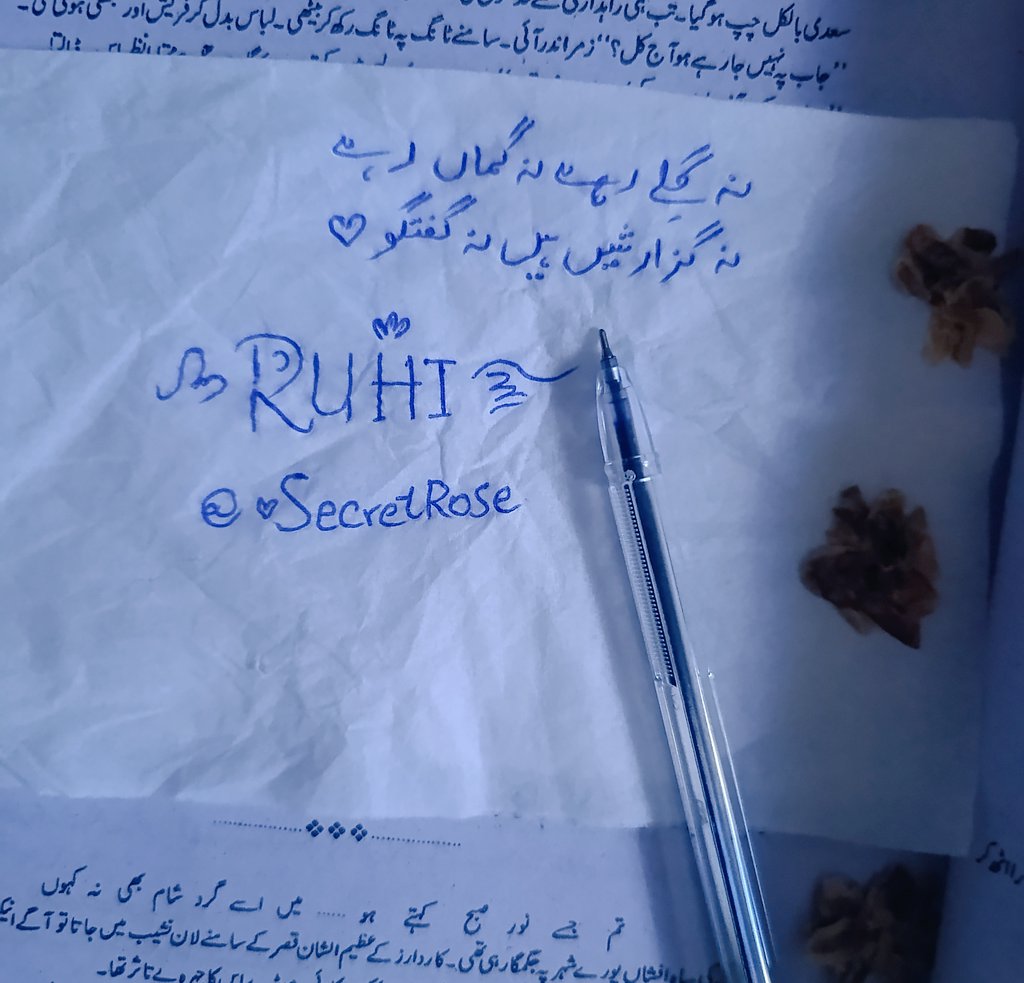 سعدی بالکل چپ ہو گیا۔ تب ہی راہداری
"جاب پہ نہیں جا رہے ہو آج کل؟" زمر اندر آئی۔ سامنے ٹانگ پہ ٹانگ رکھ کر بیٹھی۔ لباس بدل کر فریش اور
نہ گِلے رہے نہ گماں رہے
نہ گزارشیں ہیں نہ گفتگو ♡
RUHI
@ SecretRose
تم جسے نور صبح کہتے ہو ...... میں اسے گرد شام بھی نہ کہوں
پورے شہر پہ جگمگا رہی تھی۔ کاردارز کے عظیم الشان قصر کے سامنے لان نشیب میں جاتا تو آگے
چہرہ بے تاثر تھا۔